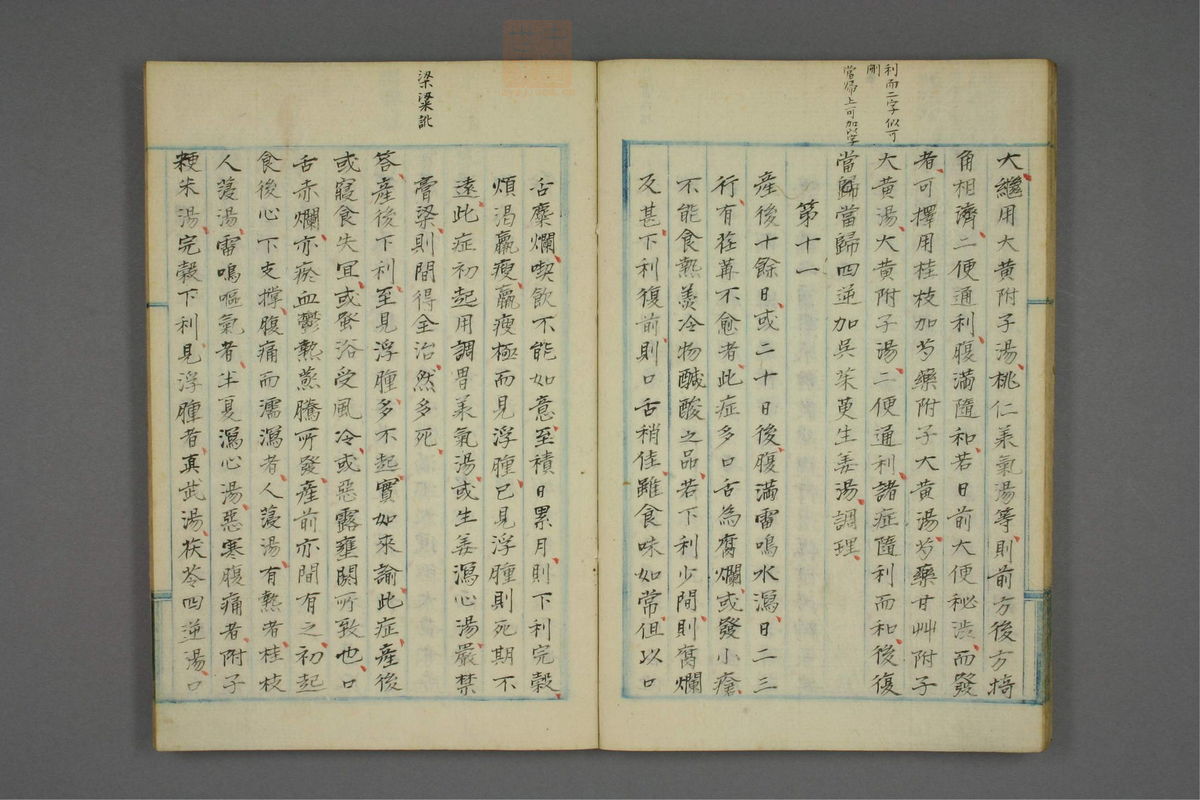 利而二字似可
刪
當歸上可加以字
大繼用大黃附子湯桃仁羕氣湯等則前方後方掎
角相濟二便通利腹滿隨和若日前大便秘澁而發
者可擇用桂枝加芍藥附子大黃湯芍藥甘艸附子
大黃湯大黃附子湯二便通利諸症隨利而和後復
當歸當歸四逆加吳茱萸生姜湯調理
第十一
產後十餘日或二十日後腹滿雷鳴水瀉日二三
行有荏苒不愈者此症多口舌為腐爛或發小瘡
不能食熱羹冷物醎酸之品若下利少間則腐爛
及甚下利復前則口舌稍佳雖食味如常但以口
梁粱訛
舌糜爛喫飲不能如意至積日累月則下利完穀
煩渴羸瘦羸瘦極而見浮腫已見浮腫則死期不
遠此症初起用調胃羕氣湯或生姜瀉心湯嚴禁
膏梁則間得全治然多死
答產後下利至見浮腫多不起實如來諭此症產後
或寢食失宜或蚤浴受風冷或惡露壅閼所致也口
舌赤爛亦瘀血鬱熱蒸騰所發產前亦間有之初起
食後心下支撐腹痛而濡瀉者人葠湯有熱者桂枝
人葠湯雷鳴嘔氣者半夏瀉心湯惡寒腹痛者附子
粳米湯完穀下利見浮腫者真武湯茯苓四逆湯口